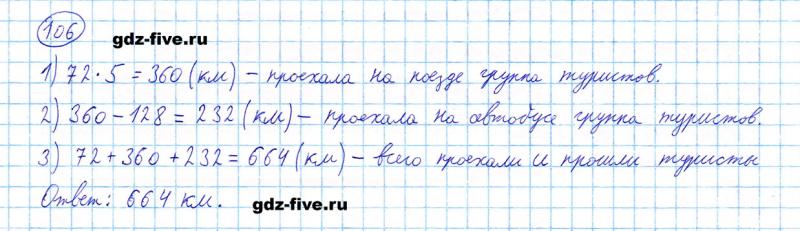 106
gdz-five.ru
1) 72 · 5 = 360 (км) – проехала на поезде группа туристов.
2) 360 – 128 = 232 (км) – проехала на автобусе группа туристов.
3) 72 + 360 + 232 = 664 (км) – всего проехали и прошли туристы
Ответ: 664 км.
gdz-five.ru